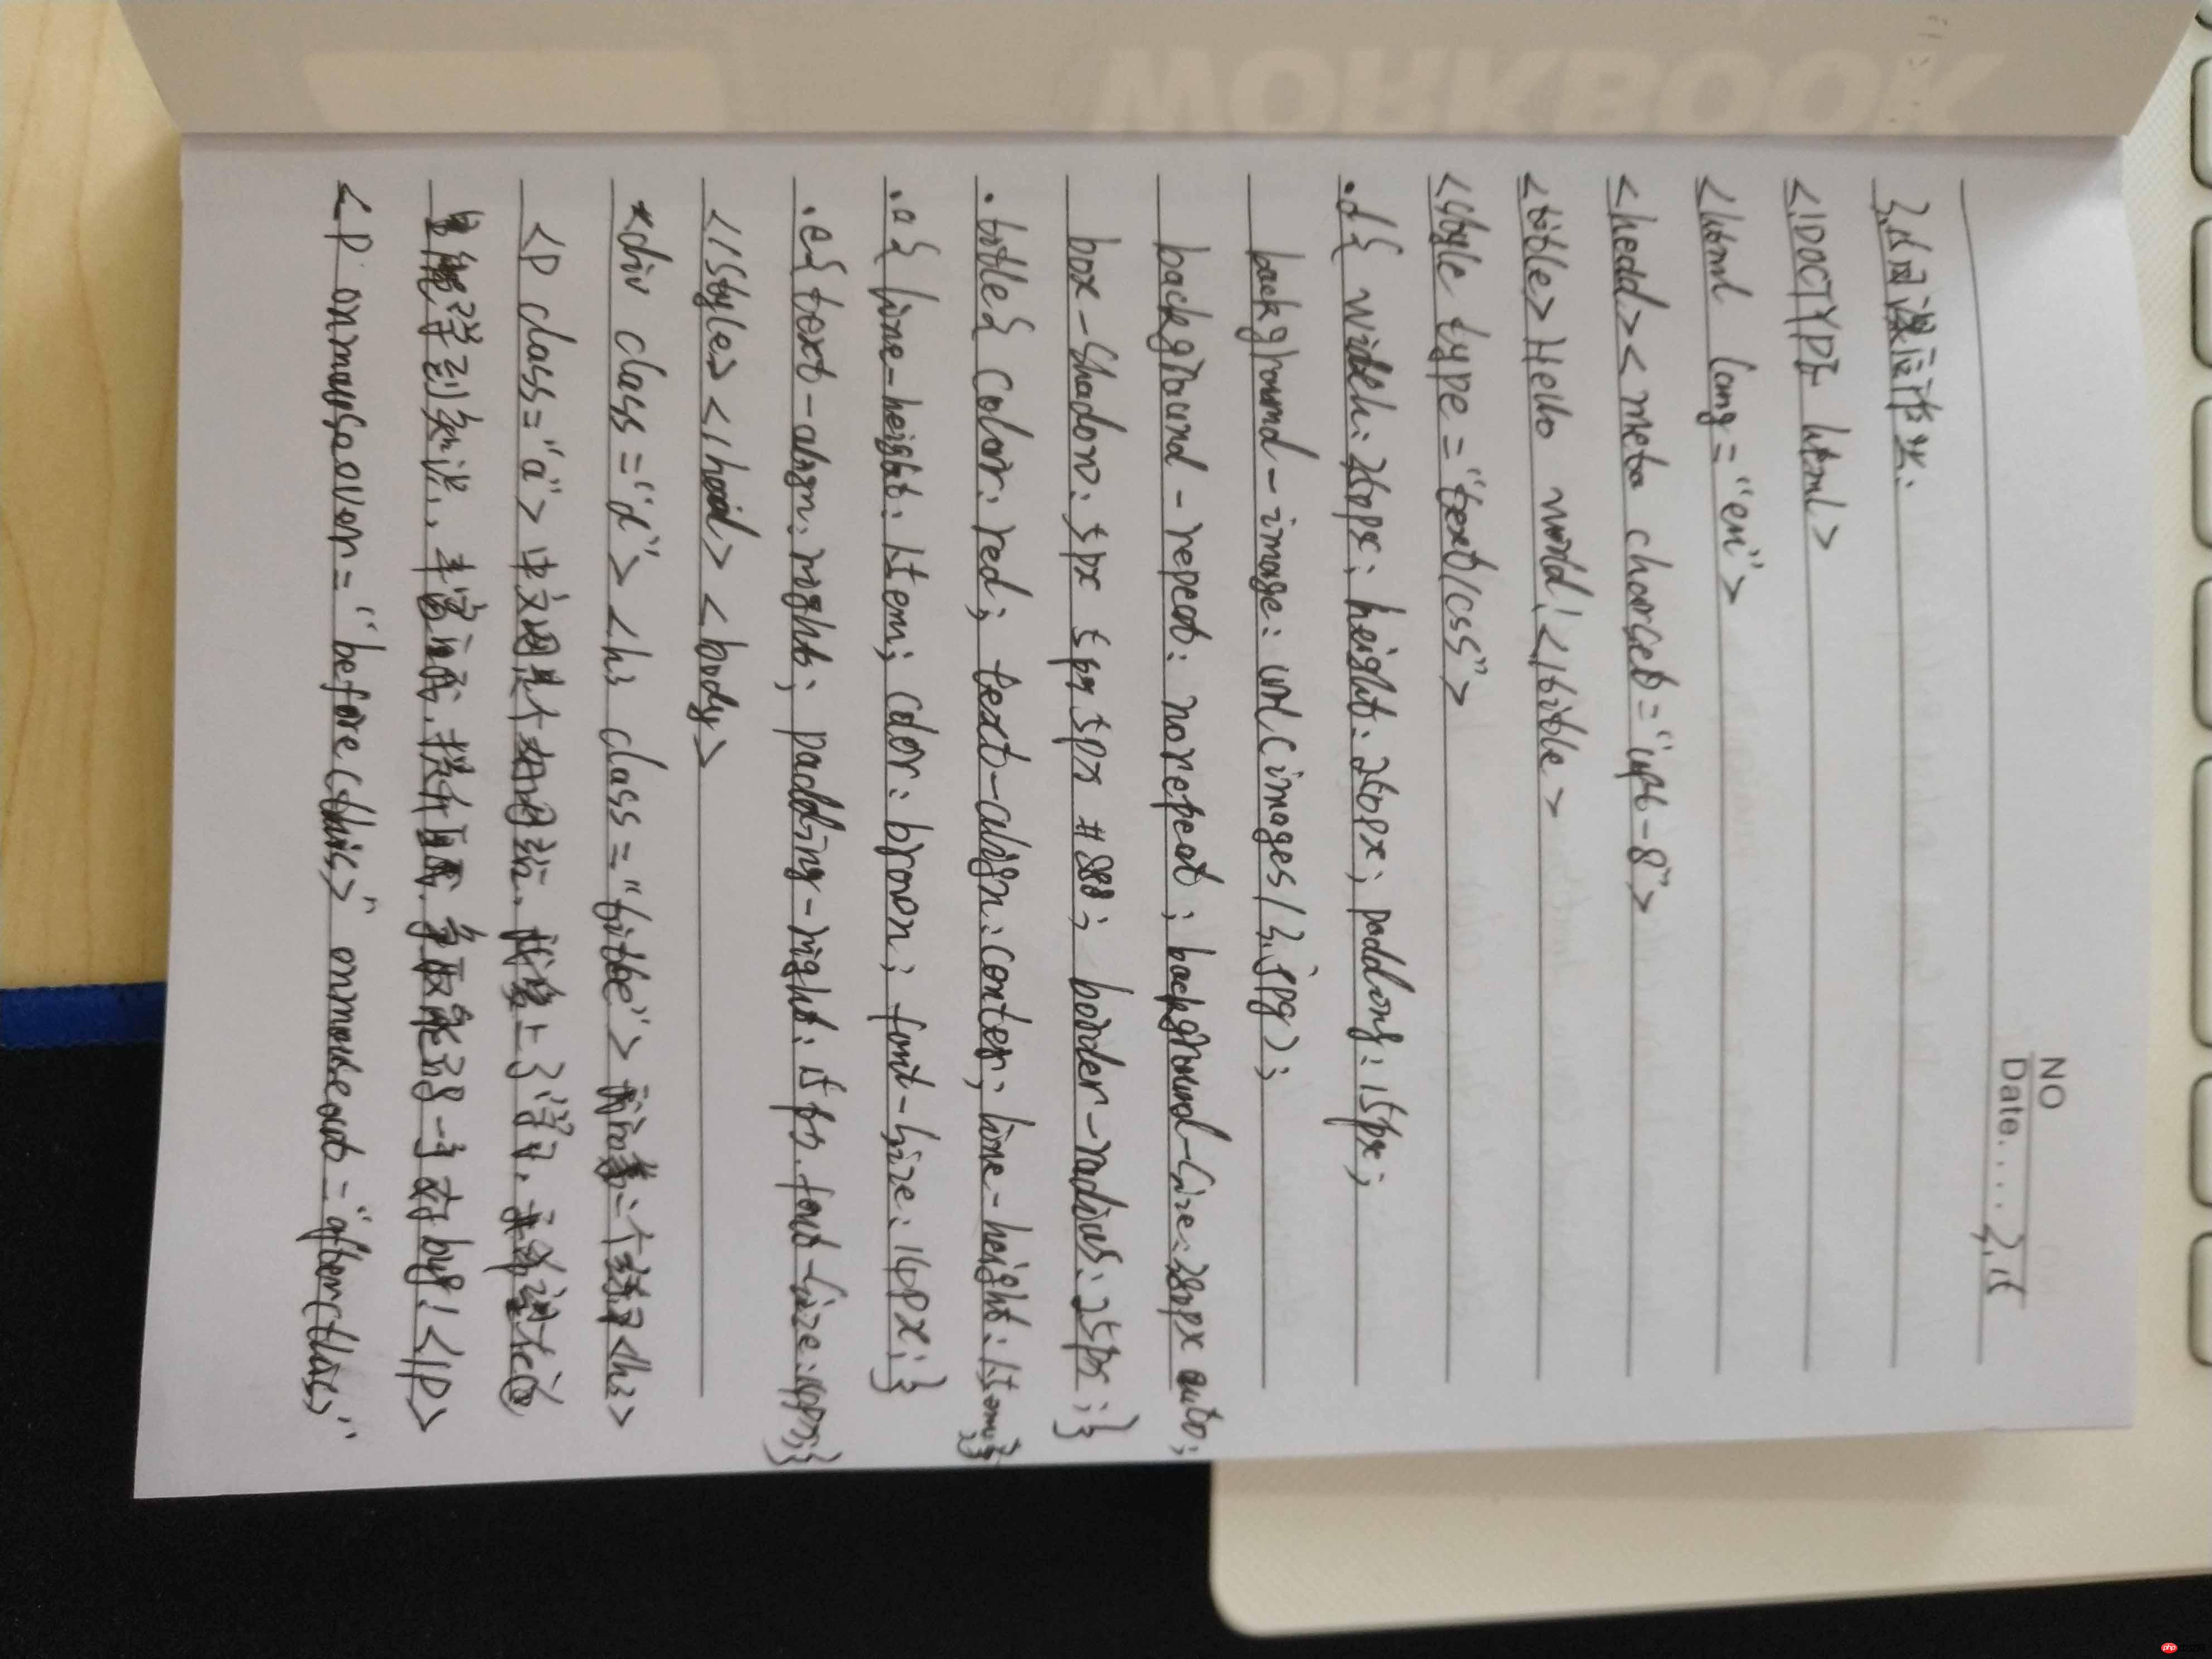 WORKBOOK
NO
Date.... 2.15
2.15日课后作业:
<!DOCTYPE html>
<html lang="en">
<head><meta charset="utf-8">
<title>Hello world!</title>
<style type="text/css">
.d{ width:250px; height:250px; padding:15px;
background-image: url(images/2.jpg);
background-repeat: norepeat; background-size:280px auto;
box-shadow: 5px 5px 5px #888; border-radius:25px;}
.title{ color:red; text-align:center; line-height:1.5em;}
.a{ line-height:1.5em; color:brown; font-size:14px;}
.e{text-align:right; padding-right:15px. font-size:14px;}
</style></head><body>
<div class="d"><h3 class="title">第二个练习<h3>
<p class="a">中文网是个 网站. 上了学习,
学到知识, 丰富, 争取能 写 bug!</p>
<p onmouseover="before(this)" onmouseout="after(this)"
php